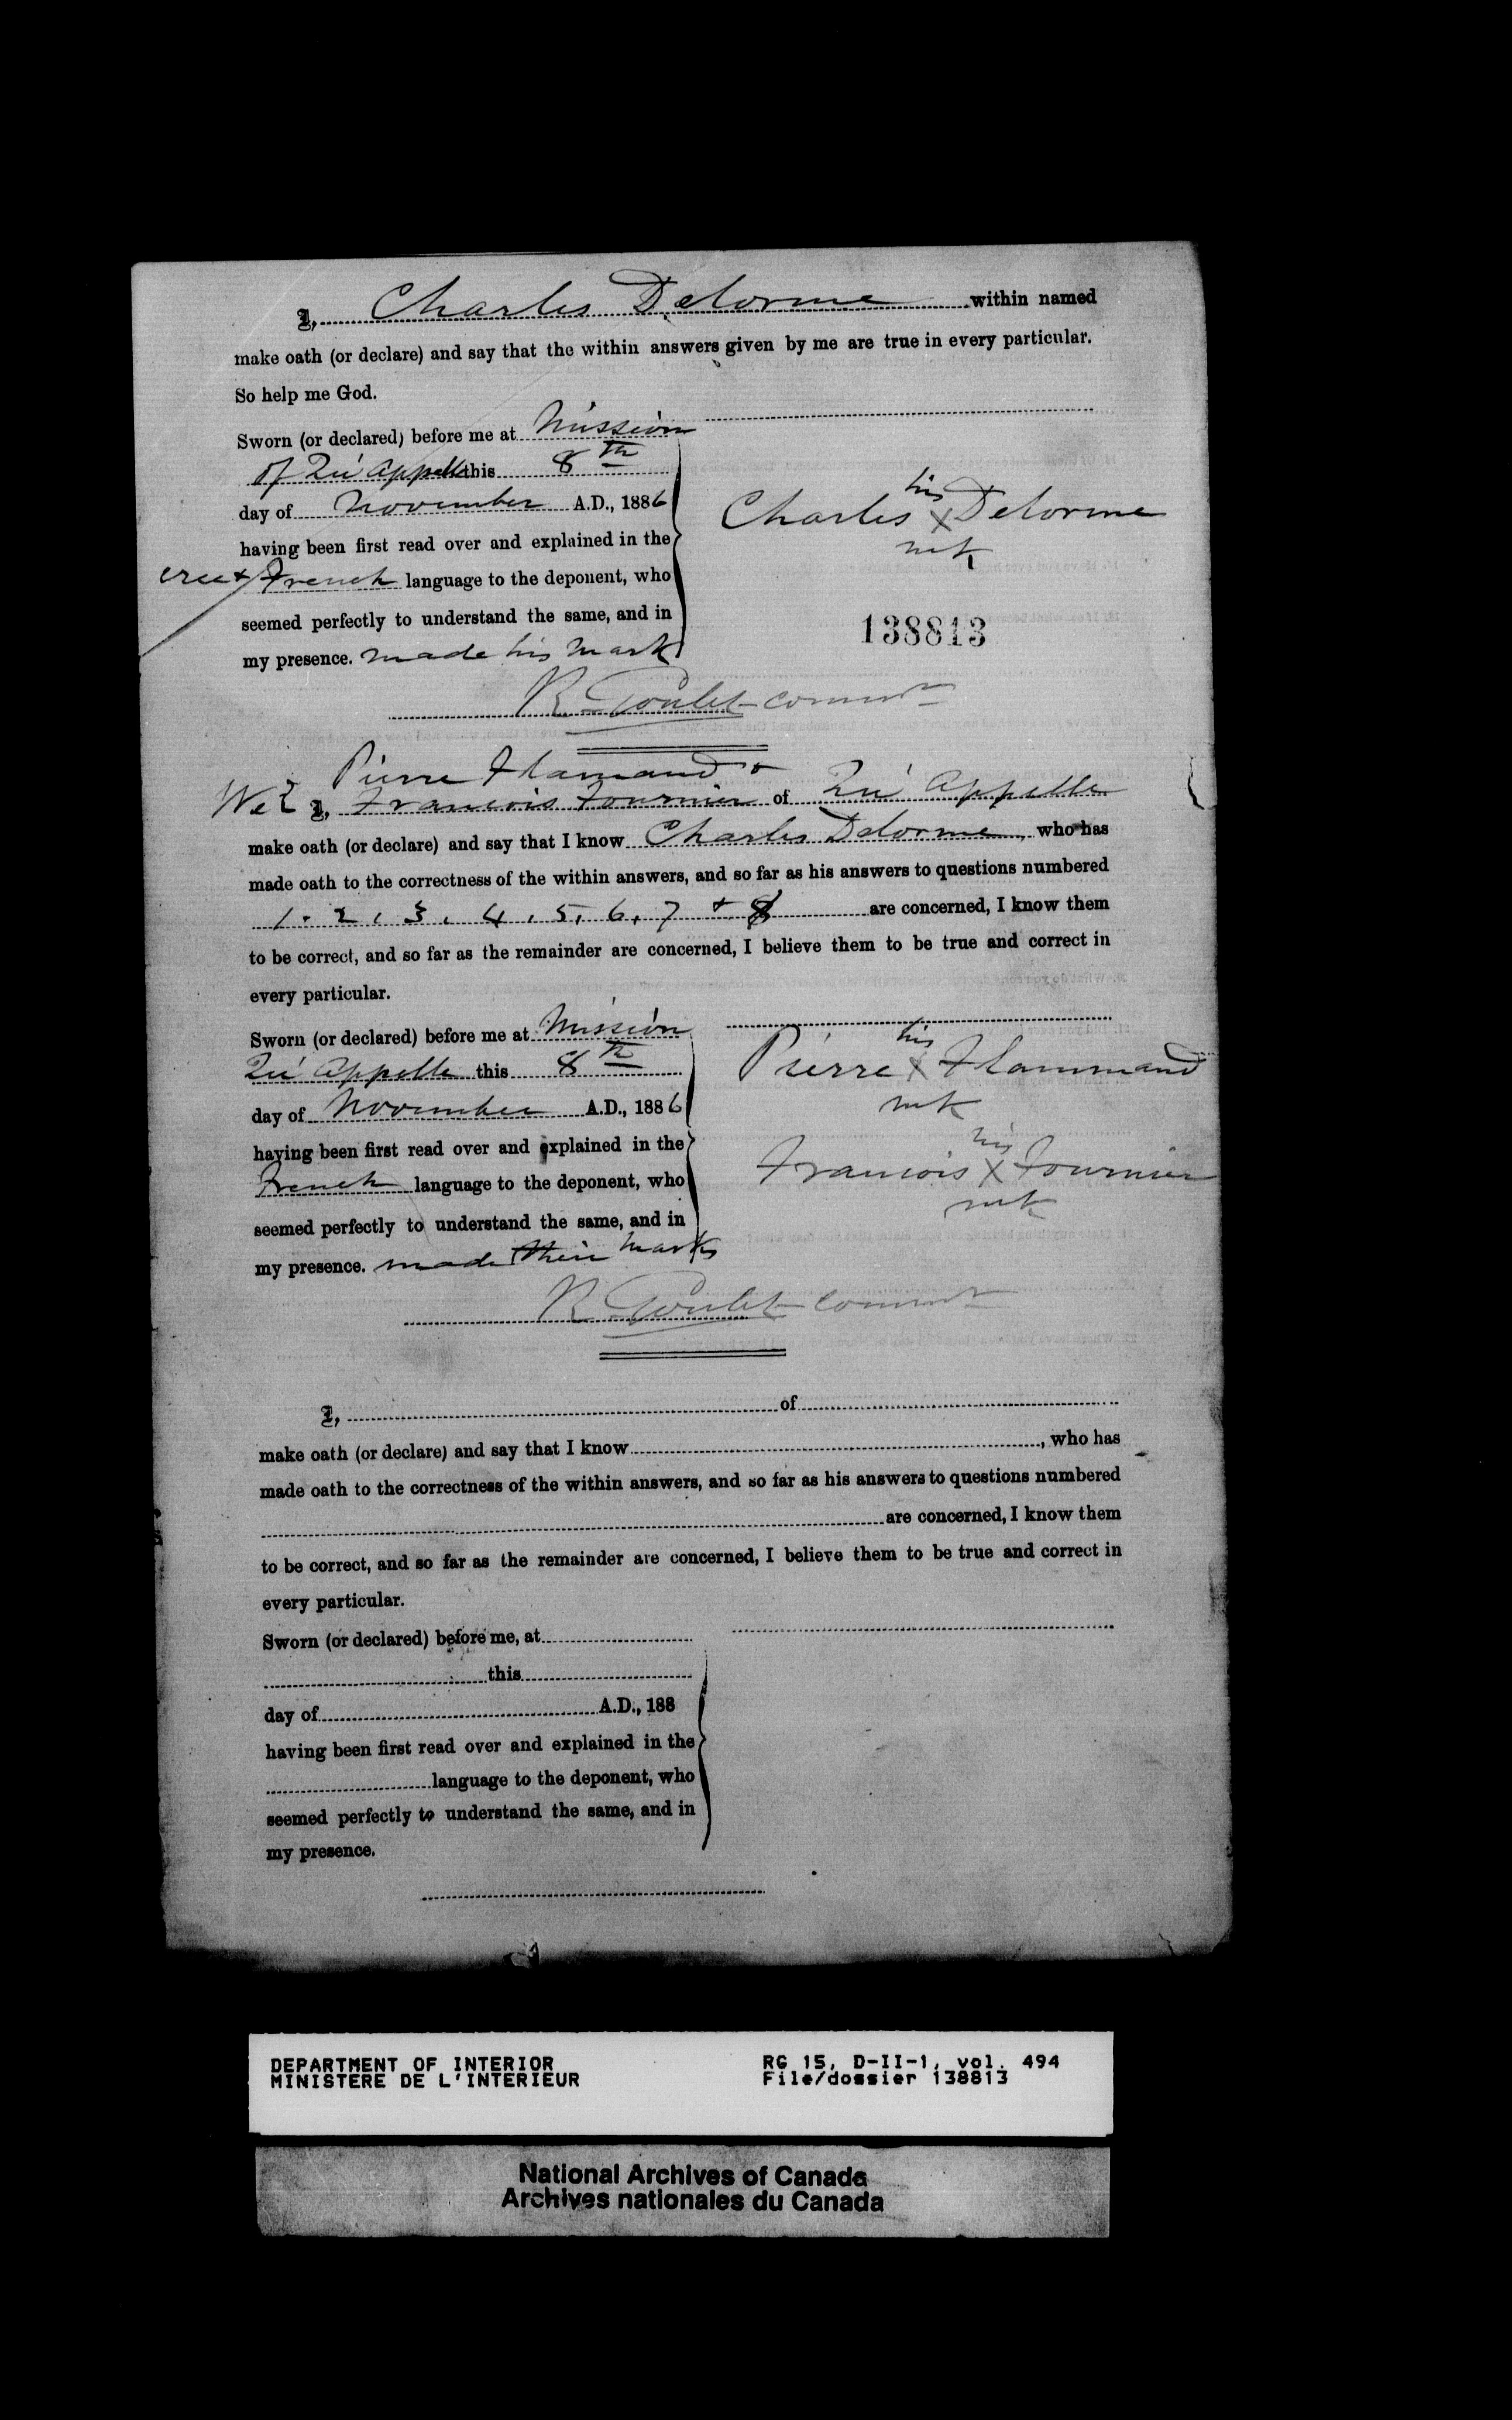 I, Charles Delorme within named
make oath (or declare) and say that the within answers given by me are true in every particular.
So help me God.
Sworn (or declared) before me at Mission
of Qu'Appelle this 8th
day of November A.D., 1886
having been first read over and explained in the
cree + French language to the deponent, who
seemed perfectly to understand the same, and in
my presence. made his mark
his
Charles X Delorme
mk
138813
R. Goulet commr
Pierre Flamand &
We I, Francois Fournier of Qu'Appelle
make oath (or declare) and say that I know Charles Delorme, who has
made oath to the correctness of the within answers, and so far as his answers to questions numbered
1. 2, 3, 4, 5, 6, 7 + 8 are concerned, I know them
to be correct, and so far as the remainder are concerned, I believe them to be true and correct in
every particular.
Sworn (or declared) before me at Mission
Qu'Appelle this 8th
day of November A.D., 1886
having been first read over and explained in the
French language to the deponent, who
seemed perfectly to understand the same, and in
my presence. made their marks
his
Pierre X Flammand
mk
his
Francois X Fournier
mk
R. Goulet commr
I, of
make oath (or declare) and say that I know , who has
made oath to the correctness of the within answers, and so far as his answers to questions numbered
are concerned, I know them
to be correct, and so far as the remainder are concerned, I believe them to be true and correct in
every particular.
Sworn (or declared) before me, at
this
day of A.D., 188
having been first read over and explained in the
language to the deponent, who
seemed perfectly to understand the same, and in
my presence.
DEPARTMENT OF INTERIOR RG 15, D-II-1, vol. 494
MINISTERE DE L'INTERIEUR File/dossier 138813
National Archives of Canada
Archives nationales du Canada